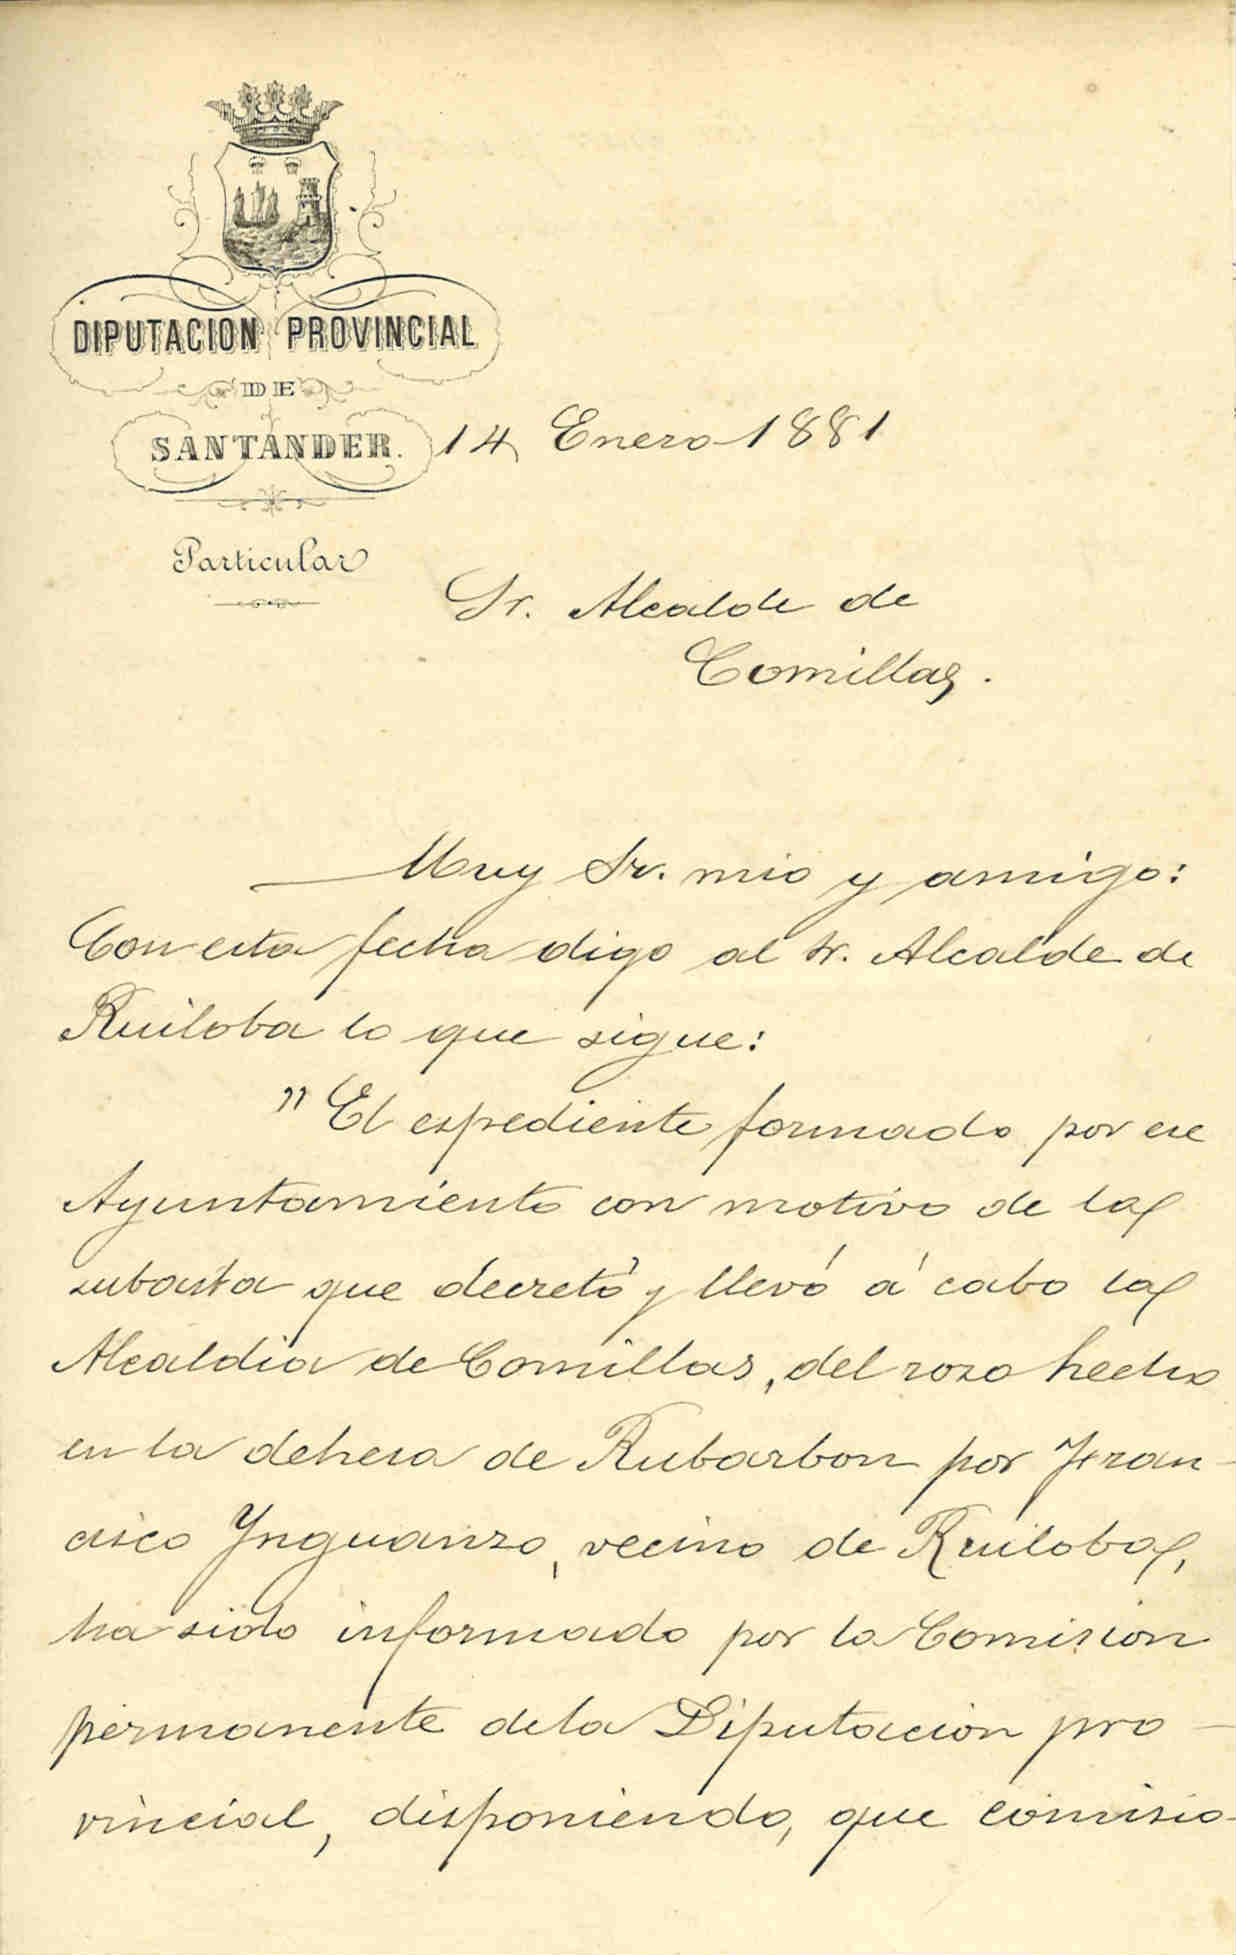 DIPUTACION PROVINCIAL
DE
SANTANDER.
14 Enero 1881
Particular
Sr. Alcalde de
Comillas.
Muy Sr. mio y amigo:
Con esta fecha digo al Sr. Alcalde de
Ruiloba lo que sigue:
"El espediente formado por ese
Ayuntamiento con motivo de la
subasta que decretó y llevó á cabo la
Alcaldia de Comillas, del rozo hecho
en la dehesa de Rubarbon por Fran-
cisco Ynguanzo, vecino de Ruiloba,
ha sido informado por la Comision
permanente de la Diputacion pro-
vincial, disponiendo, que comisio-